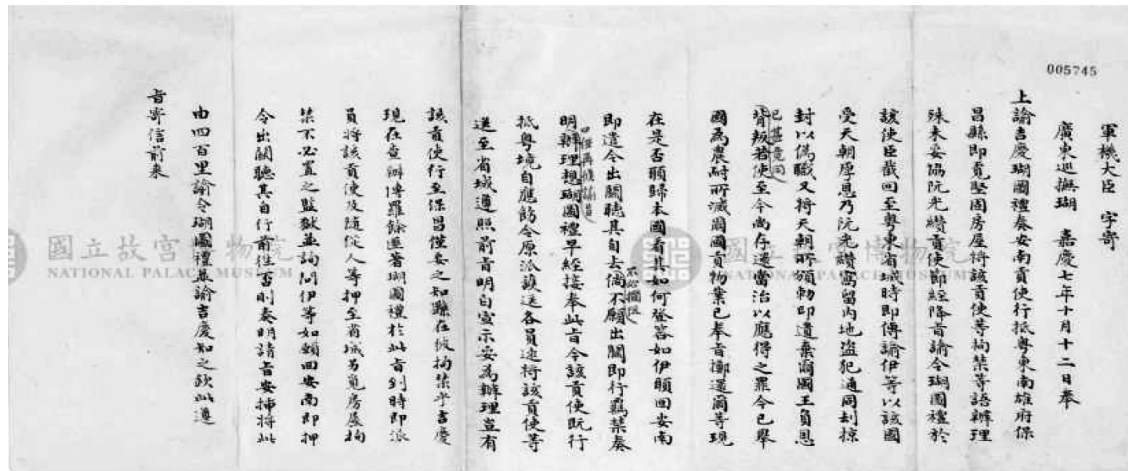 005745
軍機大臣 字寄
廣東巡撫瑚 嘉慶七年十月十二日奉
上諭吉慶瑚圖禮奏安南貢使行抵粵東南雄府保
昌縣即覓堅固房屋將該貢使等拘禁等語辦理
殊未妥協阮光纘貢使節經降旨諭令瑚圖禮於
該使臣截回至粵東省城時即傳諭伊等以該國
受天朝厚恩乃阮光纘窩留內地盜犯通同刦掠
封以偽職又將天朝所頒勅印遺棄爾國王負恩
背叛若使至今尚存還當治以應得之罪今已舉
國為農耐所滅爾國貢物業已奉旨擲還爾等現
在是否願歸本國看其如何登答如伊願回安南
即遣令出關聽其自去不必攔阻倘不願出關即行羈禁奏
明辦理想瑚圖禮早經接奉此旨令該貢使既行
抵粵境自應飭令原派護送各員速將該貢使等
送至省城遵照前旨明白宣示妥為辦理豈有
該貢使行至保昌僅委之知縣在彼拘禁乎吉慶
現在查辦博羅餘匪著瑚圖禮於此旨到時即派
員將該貢使及隨從人等押至省城另覓房屋拘
禁不必置之監獄並詢問伊等如願回安南即押
令出關聽其自行前往否則奏明請旨安插將此
由四百里諭令瑚圖禮並諭吉慶知之欽此遵
旨寄信前來
國立故宮博物院
NATIONAL PALACE MUSEUM
國立故宮博物院
NATIONAL PALACE MUSEUM